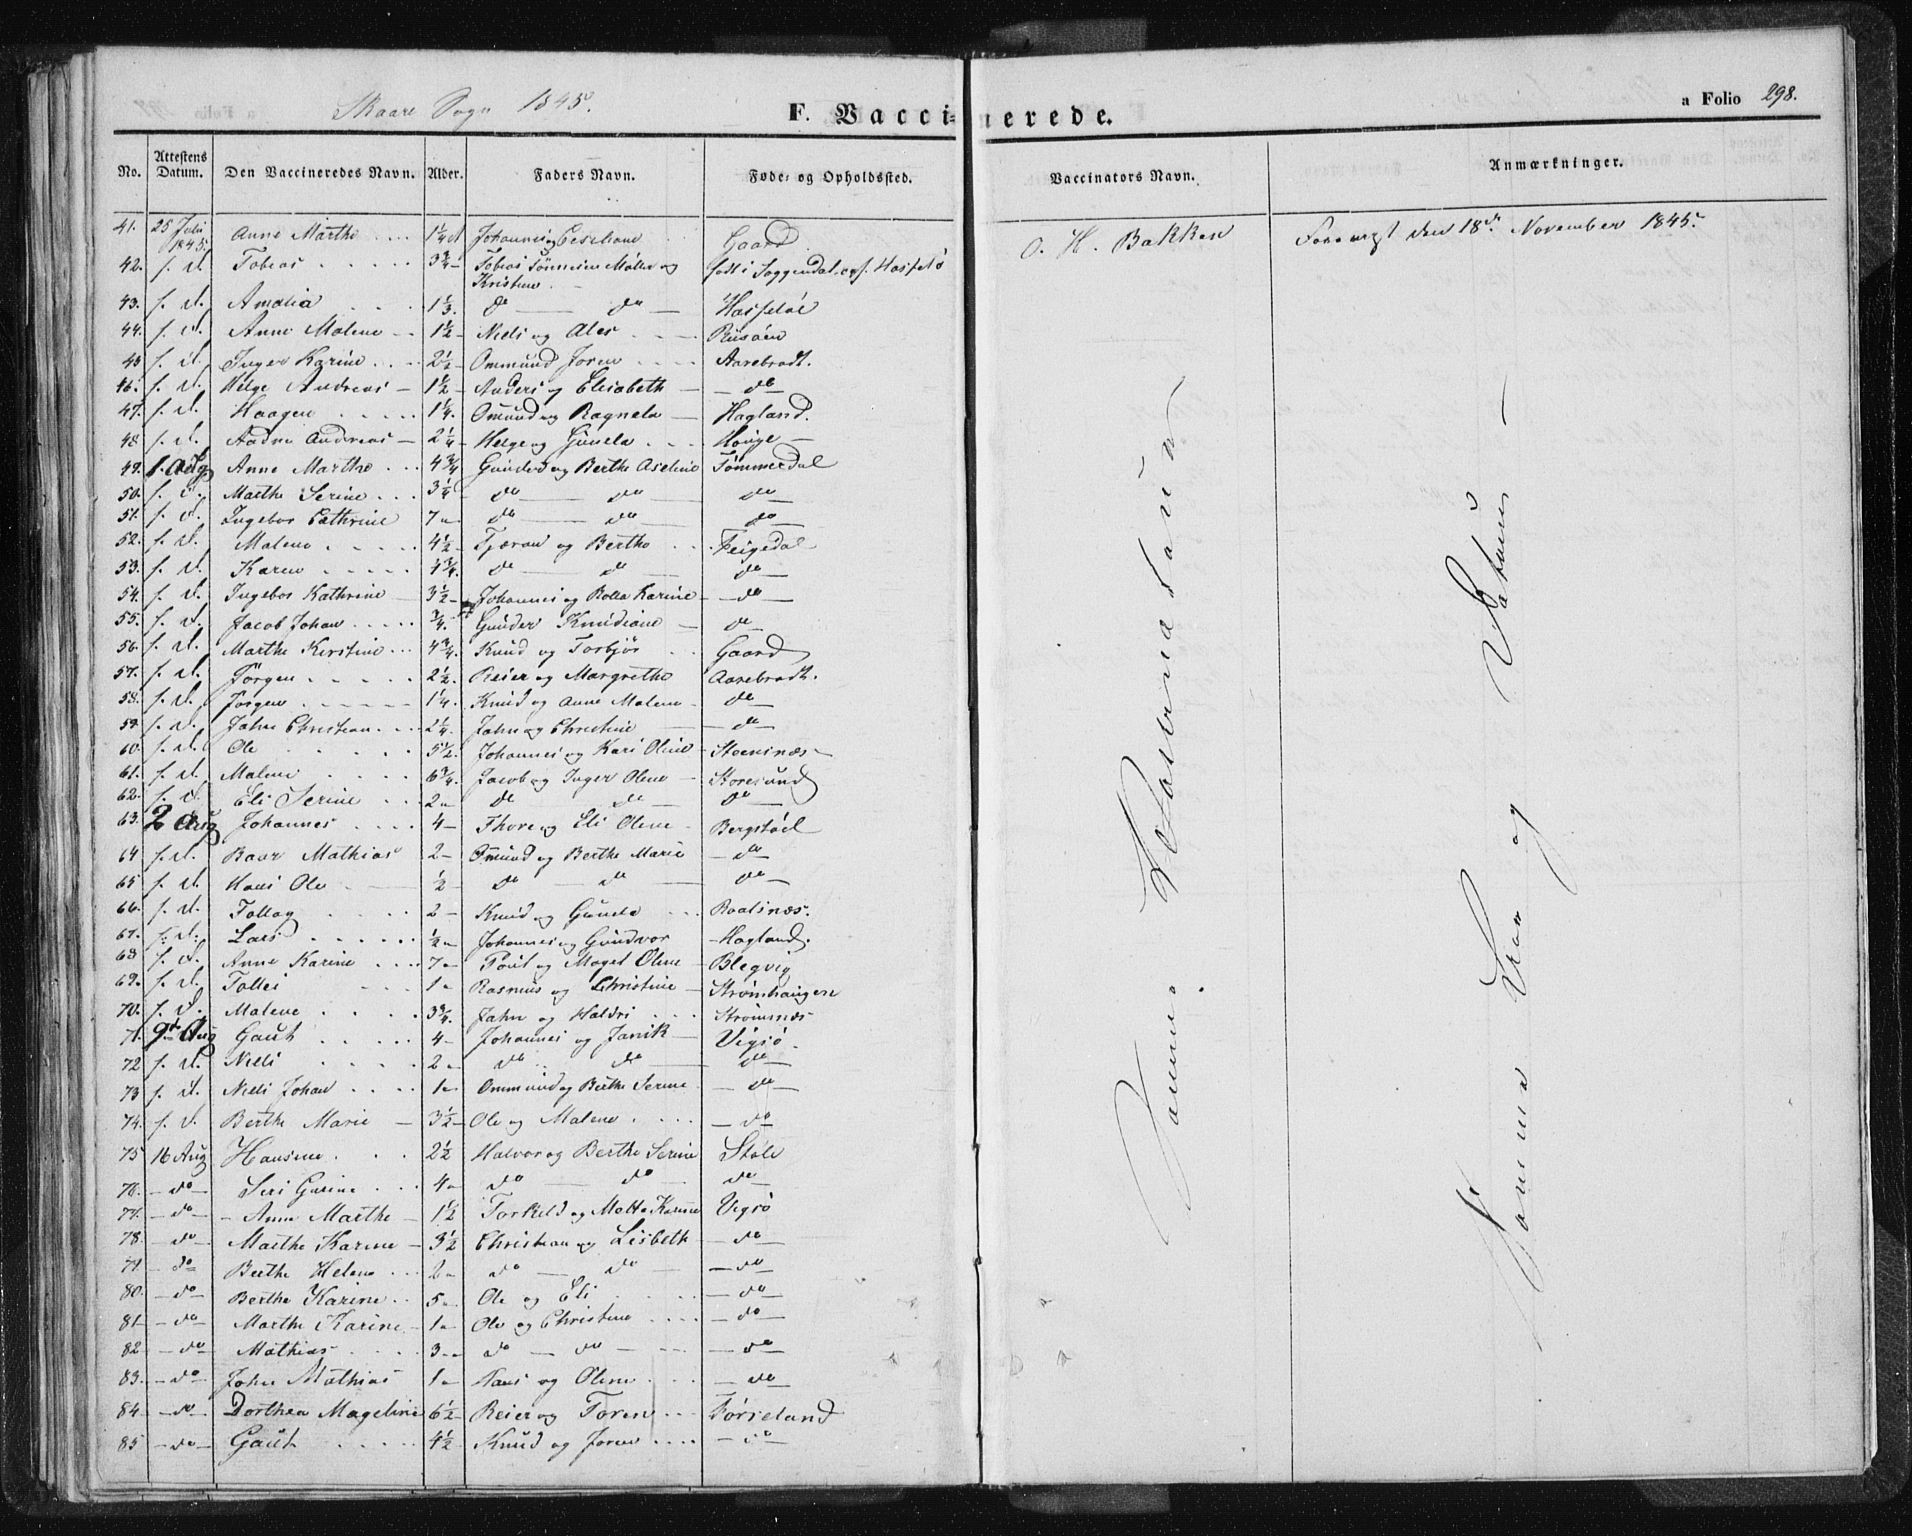 Skaare Sogn 1845.
F. Vaccinerede.
a Folio 298.
No. Attestens Datum. Den Vaccineredes Navn. Alder. Faders Navn. Føde- og Opholdssted. Vaccinators Navn. Anmærkninger.
41. 25 Juli 1845. Anne Marthe 1 1/4 Johannes og Gaard O. H. Bakken den 18de November 1845.
42. f. d. Tobias 3 3/4 Tobias Tönnesen Möller og Kristine født i Soggendal
43. f. d. Amalia 1 1/3. do do
44. f. d. Anne Malene 1 1/2 Niels og Ales Risöen
45 f. d. Inger Karine 2 1/2 Ommund Joren Aarebrodt.
46. f. d. Helge Andreas 1 1/2 Anders og Elisabeth do
47. f. d. Haagen 1 1/4. Omund og Ragnela Hagland.
48. f. d. Aadne Andreas 2 1/4 Helge og Gunela Houge
49. 1. Aug Anne Marthe 4 3/4 Gunder og Berthe Aseline Tømmerdal
50. f. d. Marthe Serine 3 1/4 do do do
51. f. d. Ingebor Cathrine 7 do do do
52. f. d. Malene 4 1/2 Tjæran og Berthe Feigedal
53. f. d. Karen 4 3/4. do do do
54. f. d. Ingebor Kathrine 3 1/2 Johannes og Bolla Karine do
55. f. d. Jacob Johan 3/4. Gunder Knudiane do
56. f. d. Marthe Kirstine 4 3/4. Knud og Torbjör Gaard
57. f. d. Jörgen 2 1/2. Reier og Margrethe Aarebrodt.
58. f. d. Jörgen 1 1/4. Knud og Anne Malene do
59. f. d. John Christian 2 1/4. John og Christine do
60. f. d. Ole 5 1/2. Johannes og Kari Oline Steensnæs
61. f. d. Malene 6 3/4. Jacob og Inger Olene Storesund
62. f. d. Eli Serine 2 do do do
63. 2 Aug Johannes 4 Thore og Eli Olene Bergstöel
64 f. d. Baar Mathias 2 Omund og Berthe Marie do
65 f. d. Hans Ole 1/2 do do do
66. f. d. Tollag 2 Knud og Gunela
67. f. d. Lars 1/2 Johannes og Gundvor Hagland.
68 f. d. Anne Karine 7 Poul og Maget Olene Blegvig
69. f. d. Tollei 1 Rasmus og Christine Strømhaugen
70. f. d. Malene 3 3/4. John og Haldri Strömnæs
71. 9de Aug Gaut 4 Johannes og Janik Vigsö.
72 f. d. Niels 2 do do do
73 f. d. Niels Johan 1 Ommund og Berthe Serine do
74. f. d. Berthe Marie 3 1/2 Ole og Malene do
75 16 Aug Hansine 2 1/2 Halvor og Berthe Serine Støle
76. do Seri Gurine 4 do do do
77. do Anne Marthe 1 1/2 Torkild og Mette Karine Vigsö
78. do Marthe Karine 3 1/2 Christian og Lisbeth do
79 do Berthe Helene 2 do do do
80. do Berthe Karine 5 Ole og Eli do
81 do Marthe Karine 1 Ole og Christine do
82 do Mathias 3 do do do
83. do John Mathias 1 Hans og Olene do
84 do Dorthea Mageline 6 1/2 Reier og Toren Førreland
85 do Gaut 4 1/2 Knud og Joren do